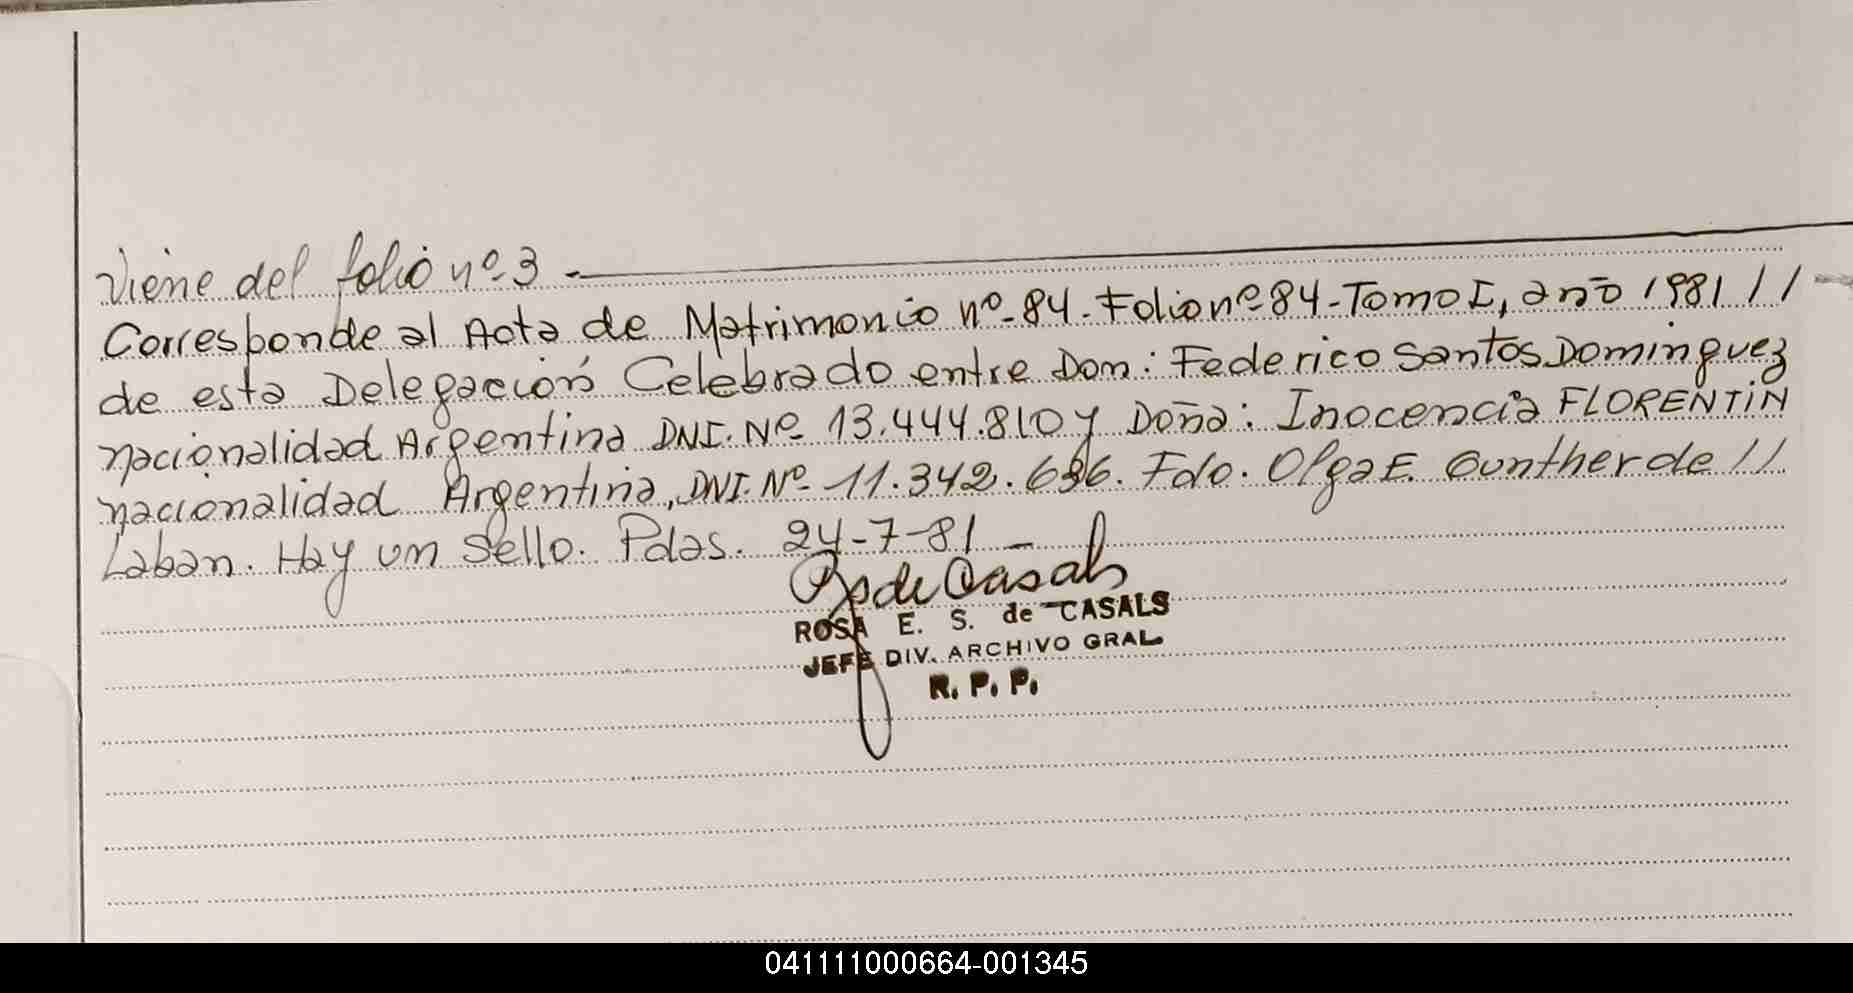 Viene del folio nº-3 -
Corresponde al Acta de Matrimonio nº-84-Folio nº-84-Tomo I, año 1981 //
de esta Delegación Celebrado entre Don: Federico Santos Dominguez
nacionalidad Argentina DNI. Nº- 13.444.810 y Doña: Inocencia FLORENTIN
nacionalidad Argentina, DNI. Nº- 11.342.686. Fdo. Olga E. Gunther de //
Laban. Hay un Sello. Pdas. 24-7-81 -
de Casals
ROSA E. S. de CASALS
JEFE DIV. ARCHIVO GRAL.
R. P. P.
041111000664-001345